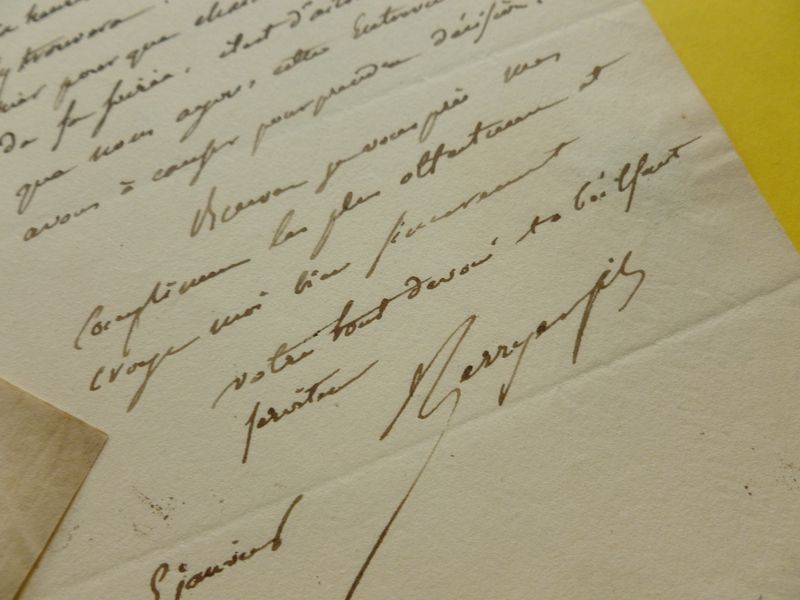 trouvera
pour que
de la soirée. il est d'ai
que nous ayons, cette Entrevue
avons à causer pour prendre décision.
Recevez je vous prie mes
Complimens les plus affectueux et
croyez moi bien sincerement
votre tout devoué et obéissant
serviteur Berryer fils
5 janvier